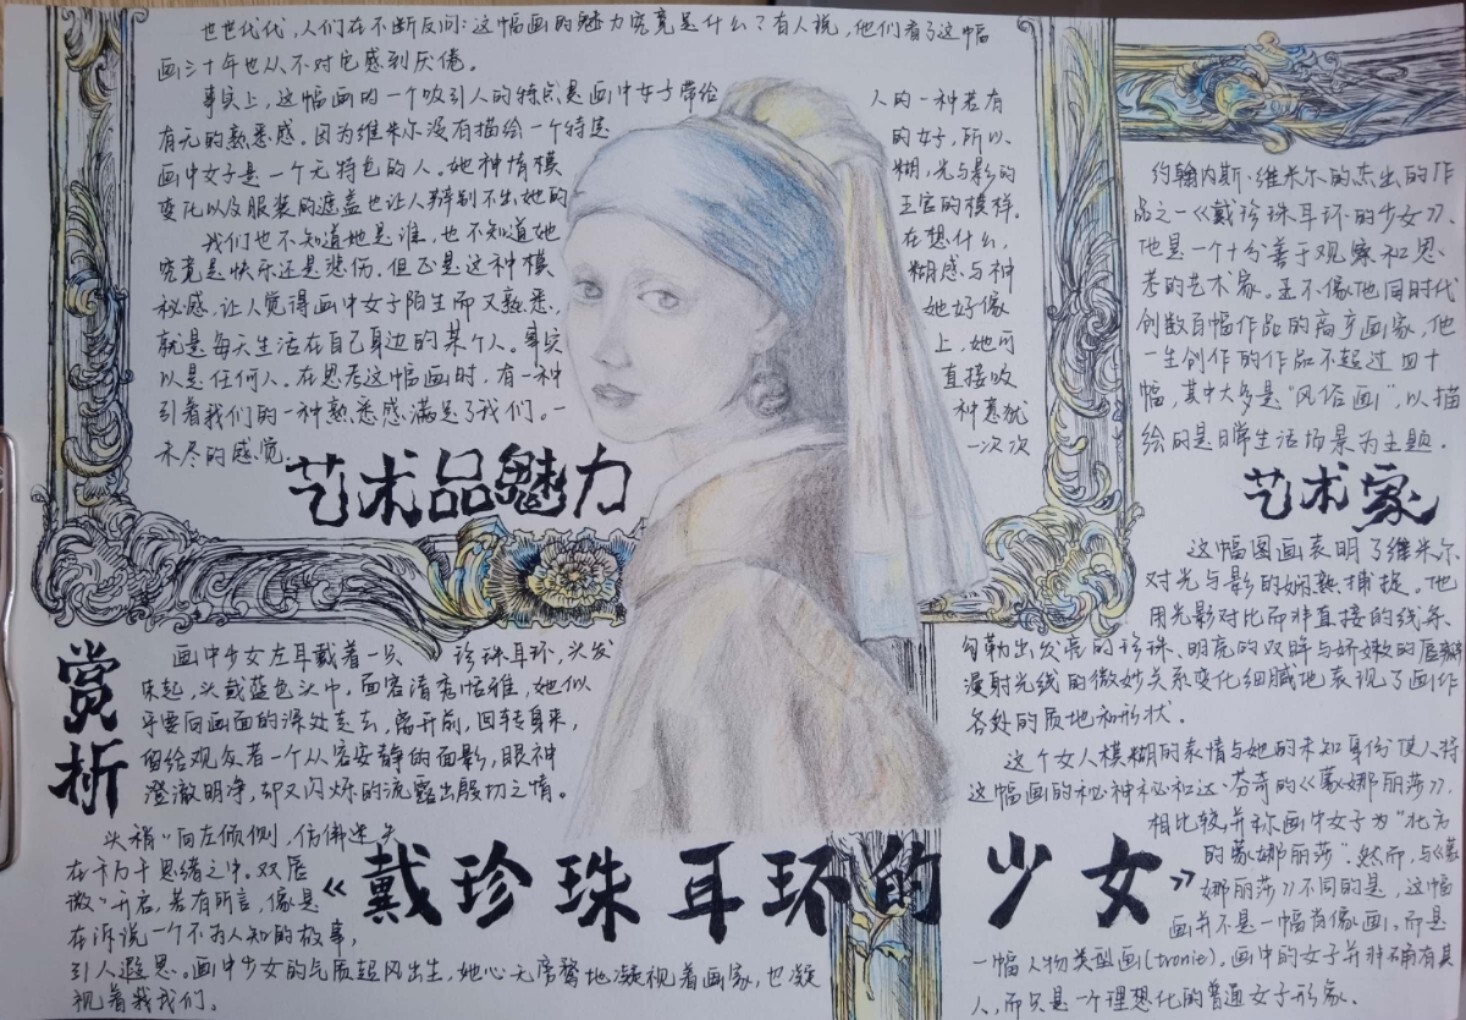 世世代代，人们在不断反问：这幅画的魅力究竟是什么？有人说，他们看了这幅
画三十年也从不对它感到厌倦。
事实上，这幅画的一个吸引人的特点是画中女子带给 人的一种若有
有无的熟悉感。因为维米尔没有描绘一个特定 的女子，所以、
画中女子是一个无特色的人。她神情模 糊，光与影的
变化以及服装的遮盖也让人辨别不出她的 五官的模样。
我们也不知道她是谁，也不知道她 在想什么，
究竟是快乐还是悲伤。但正是这种模 糊感与神
秘感，让人觉得画中女子陌生而又熟悉， 她好像
就是每天生活在自己身边的某个人。事实 上，她可
以是任何人。在思考这幅画时，有一种 直接吸
引着我们的一种熟悉感满足了我们。一 种意犹
未尽的感觉。 一次次
艺术品魅力
赏析
画中少女左耳戴着一只 珍珠耳环，头发
束起，头戴蓝色头巾，面容清秀恬雅，她似
乎要向画面的深处走去，离开前，回转身来，
留给观友者一个从容安静的面影，眼神
澄澈明净，却又闪烁的流露出殷切之情。
头稍“向左倾侧，仿佛迷失
在千万千思绪之中。双唇
微“开启，若有所言，像是
在诉说一个不为人知的故事，
引人遐思。画中少女的气质超凡出尘，她心无旁骛地凝视着画家，也凝
视着我我们。
《戴珍珠耳环的少女》
约翰内斯·维米尔的杰出的作
品之一《戴珍珠耳环的少女》、
他是一个十分善于观察和思
考的艺术家。并不像他同时代
创数百幅作品的高产画家，他
一生创作的作品不超过四十
幅，其中大多是“风俗画”，以描
绘的是日常生活场景为主题。
艺术家
这幅图画表明了维米尔
对光与影的娴熟捕捉。他
用光影对比而非直接的线条、
勾勒出发亮的珍珠、明亮的双眸与娇嫩的唇瓣
漫射光线的微妙关系变化细腻地表现了画作
各处的质地和形状。
这个女人模糊的表情与她的未知身份使人将
这幅画的秘神秘和达·芬奇的《蒙娜丽莎》，
相比较，并称画中女子为“北方
的蒙娜丽莎”。然而，与《蒙
娜丽莎》不同的是，这幅
画并不是一幅肖像画，而是
一幅人物类型画(tronie)。画中的女子并非确有其
人，而只是一个理想化的普通女子形象。